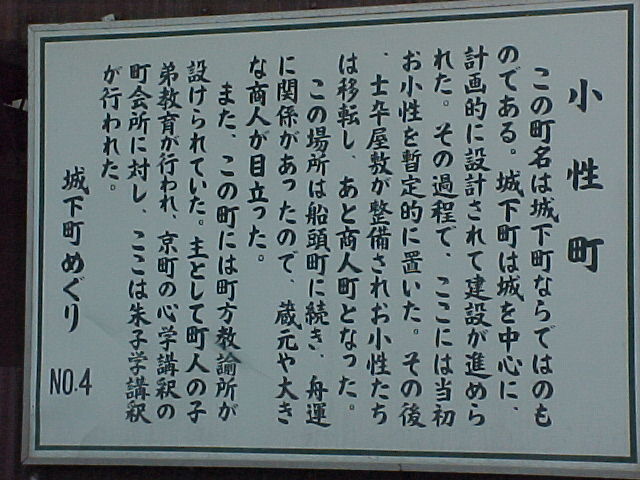 小性町
この町名は城下町ならではのも
のである。城下町は城を中心に、
計画的に設計されて建設が進めら
れた。その過程で、ここには当初
お小性を暫定的に置いた。その後
、士卒屋敷が整備されお小性たち
は移転し、あと商人町となった。
この場所は船頭町に続き、舟運
に関係があったので、蔵元や大き
な商人が目立った。
また、この町には町方教諭所が
設けられていた。主として町人の子
弟教育が行われ、京町の心学講釈の
町会所に対し、ここは朱子学講釈
が行われた。
城下町めぐり NO.4